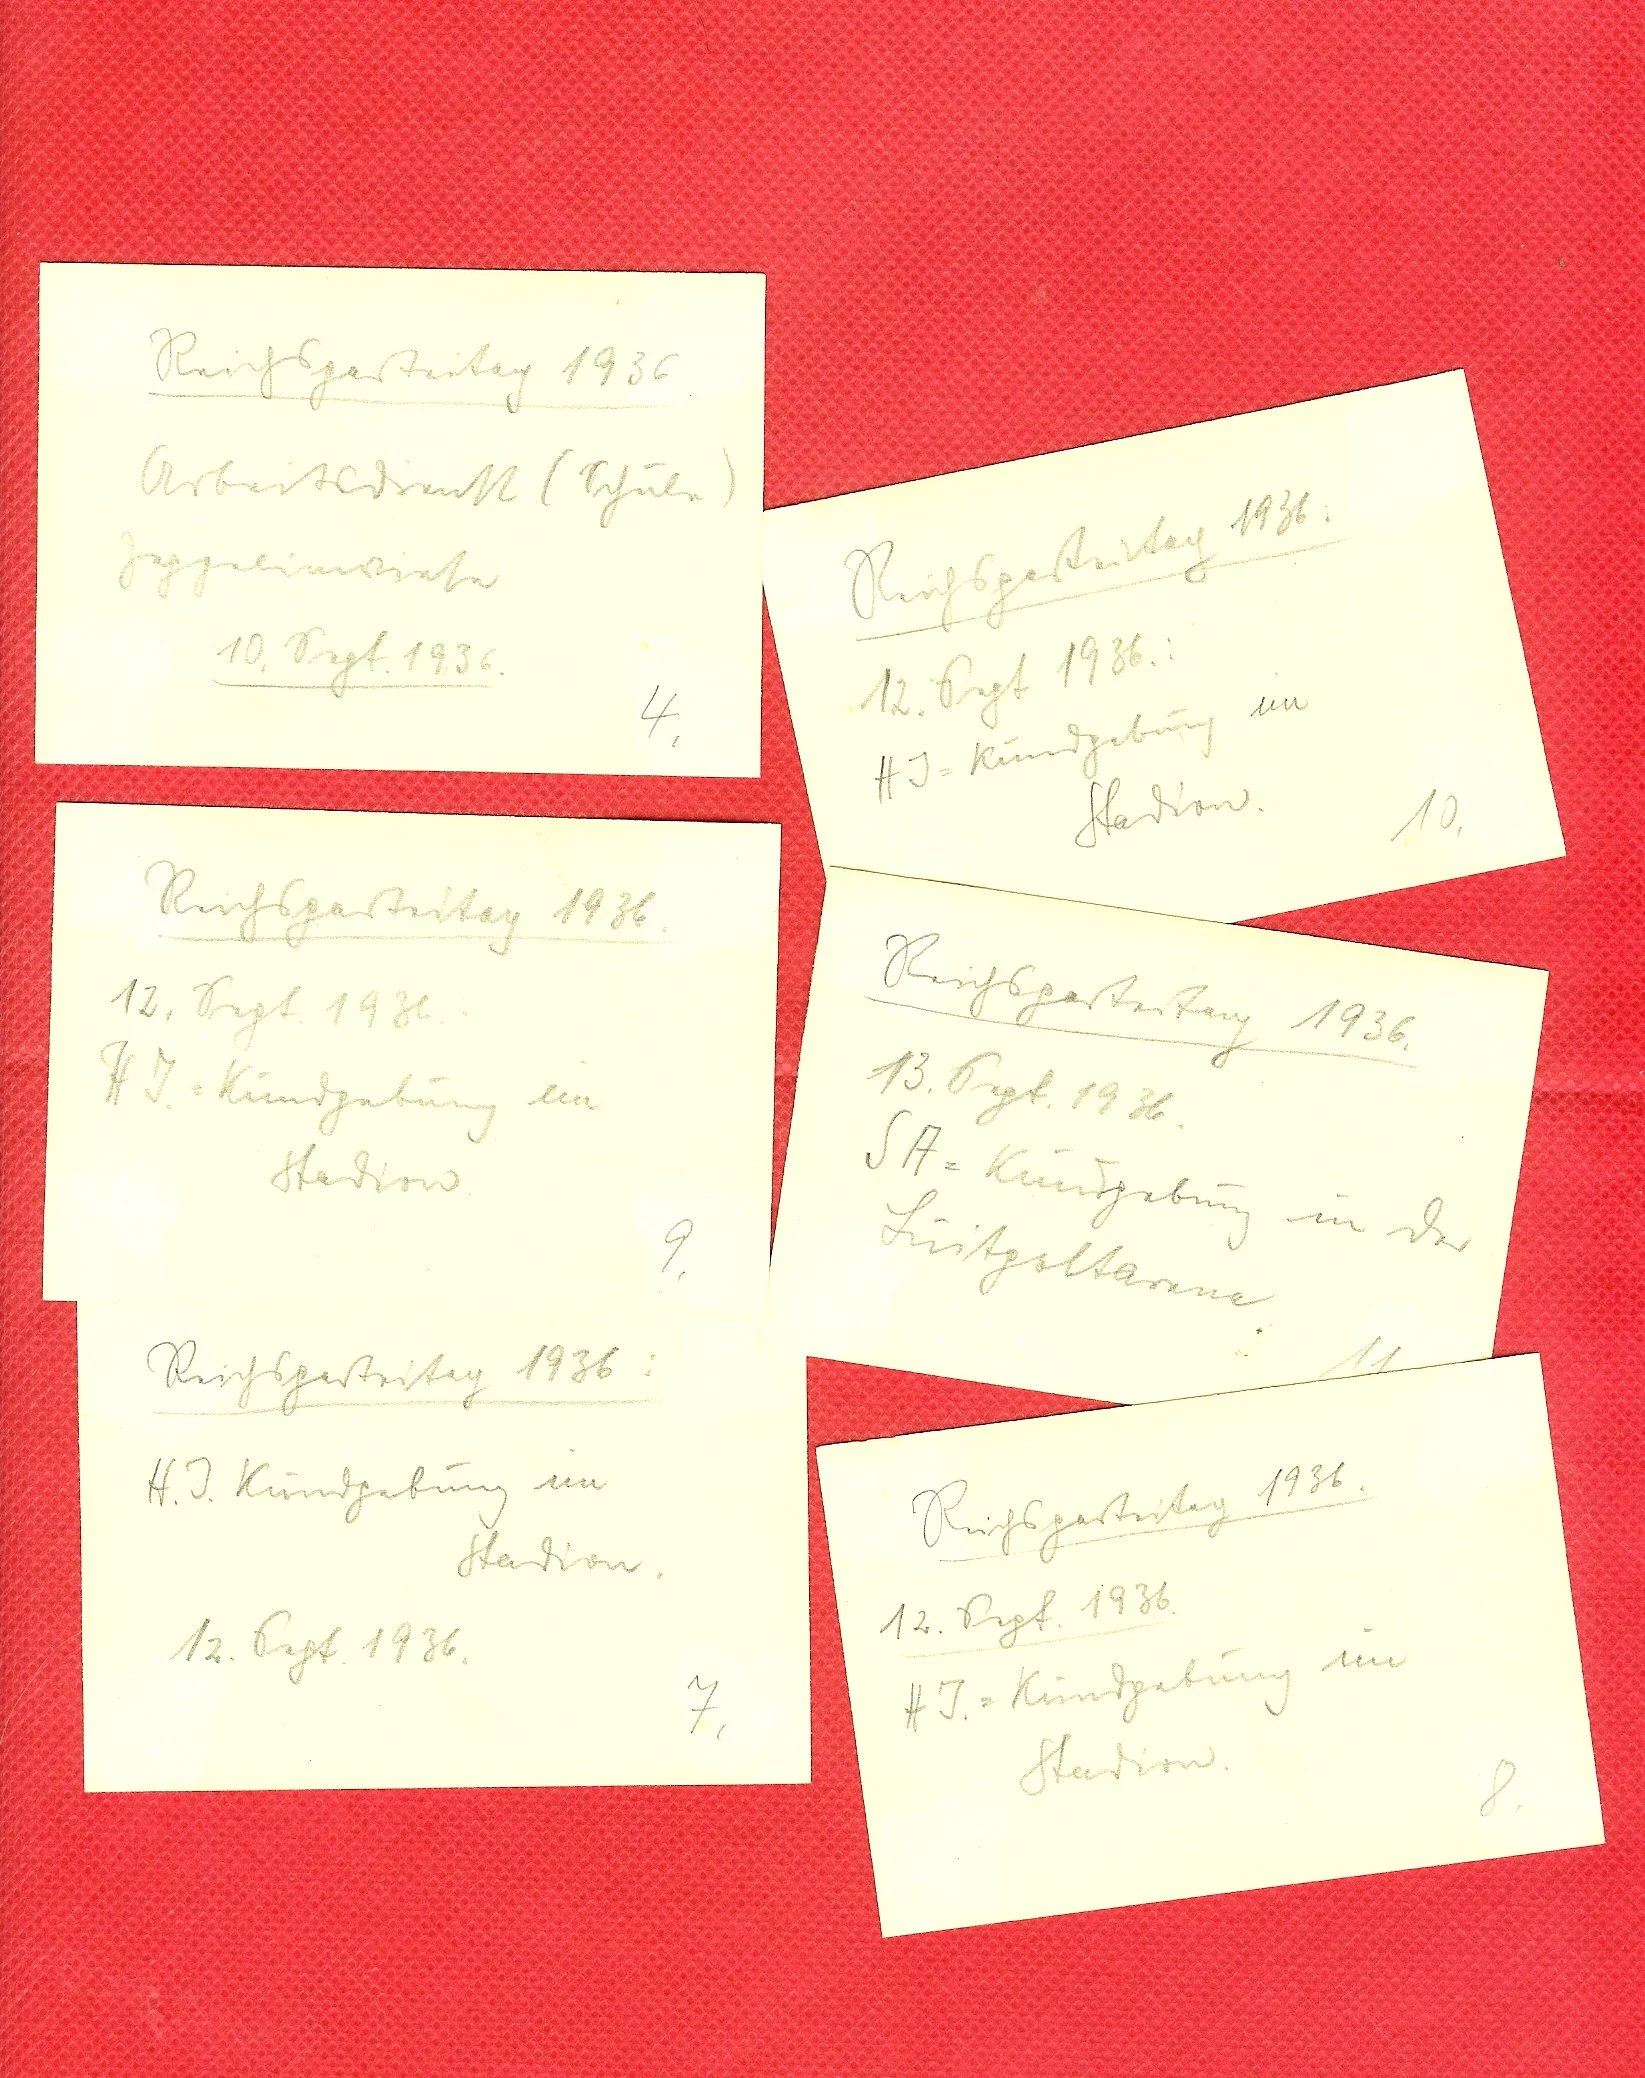 Reichsparteitag 1936
Arbeitsdienst (Schule)
Zeppelinwiese
10. Sept. 1936.
4.
Reichsparteitag 1936.
12. Sept. 1936.
H J.= Kundgebung im
Stadion.
9.
Reichsparteitag 1936:
H. J. Kundgebung im
Stadion.
12. Sept. 1936.
7.
Reichsparteitag 1936:
12. Sept 1936.:
H J= Kundgebung im
Stadion.
10.
Reichsparteitag 1936.
13. Sept. 1936.
SA= Kundgebung in der
Luitpoltarena
11
Reichsparteitag 1936.
12. Sept. 1936.
H J.= Kundgebung im
Stadion.
8.